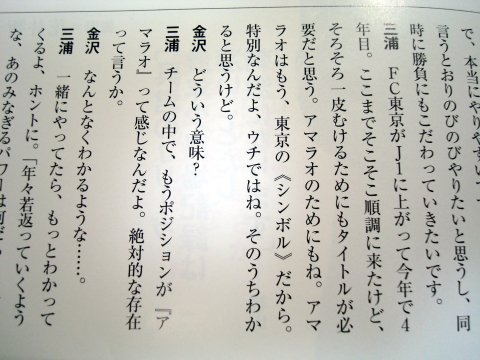 で、本当にやりやすいで
言うとおりのびのびやりたいと思うし、同
時に勝負にもこだわっていきたいです。
三浦　ＦＣ東京がＪ１に上がって今年で４
年目。ここまでそこそこ順調に来たけど、
そろそろ一皮むけるためにもタイトルが必
要だと思う。アマラオのためにもね。アマ
ラオはもう、東京の《シンボル》だから。
特別なんだよ、ウチではね。そのうちわか
ると思うけど。
金沢　どういう意味？
三浦　チームの中で、もうポジションが『ア
マラオ』って感じなんだよ。絶対的な存在
って言うか。
金沢　なんとなくわかるような……。
三浦　一緒にやってたら、もっとわかって
くるよ、ホントに。「年々若返っていくよう
な、あのみなぎるパワーは何だ